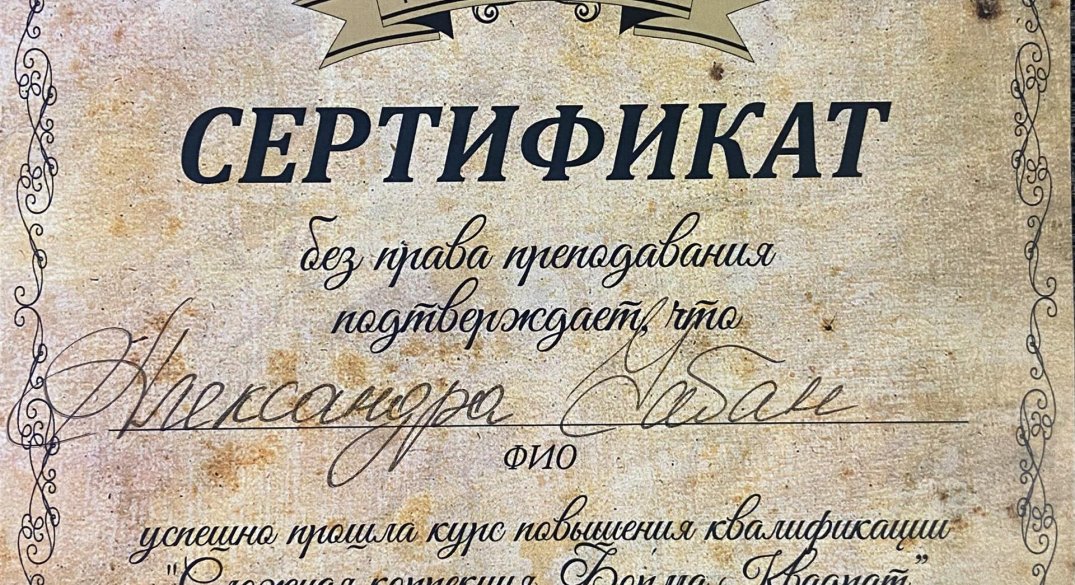 СЕРТИФИКАТ
без права преподавания
подтверждает, что
Александра Чабан
ФИО
успешно прошла курс повышения квалификации
"Сложная коррекция. Форма. Квадрат"